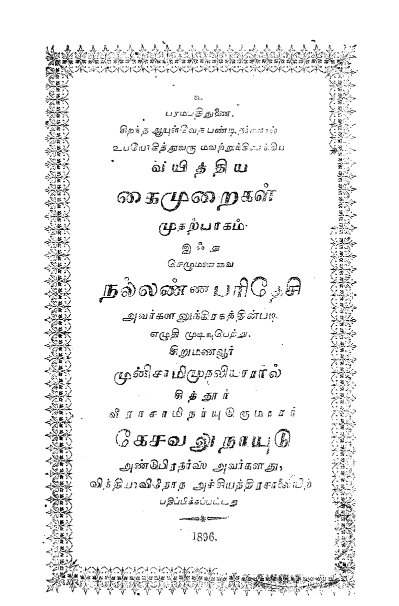 உ
பரமபதிதுணை.
சிறந்த ஆயுள்வேதபண்டிதர்களால்
உபயோகித்துவரு
வயித்திய
கைமுறைகள்
முதற்பாகம்.
இஃது
செழுமணவை
நல்லண்ணபரிதேசி
அவர்களனுக்கிரகத்தின்படி
எழுதி முடிவுபெற்று,
சிறுமணவூர்
முனிசாமிமுதலியாரால்
சித்தூர்
கேசவலுநாயுடு
அண்பிரதர்ஸ் அவர்களது,
வித்தியாவிநோத அச்சியந்திரசாலையிற்
பதிப்பிக்கப்பட்டது
1896.